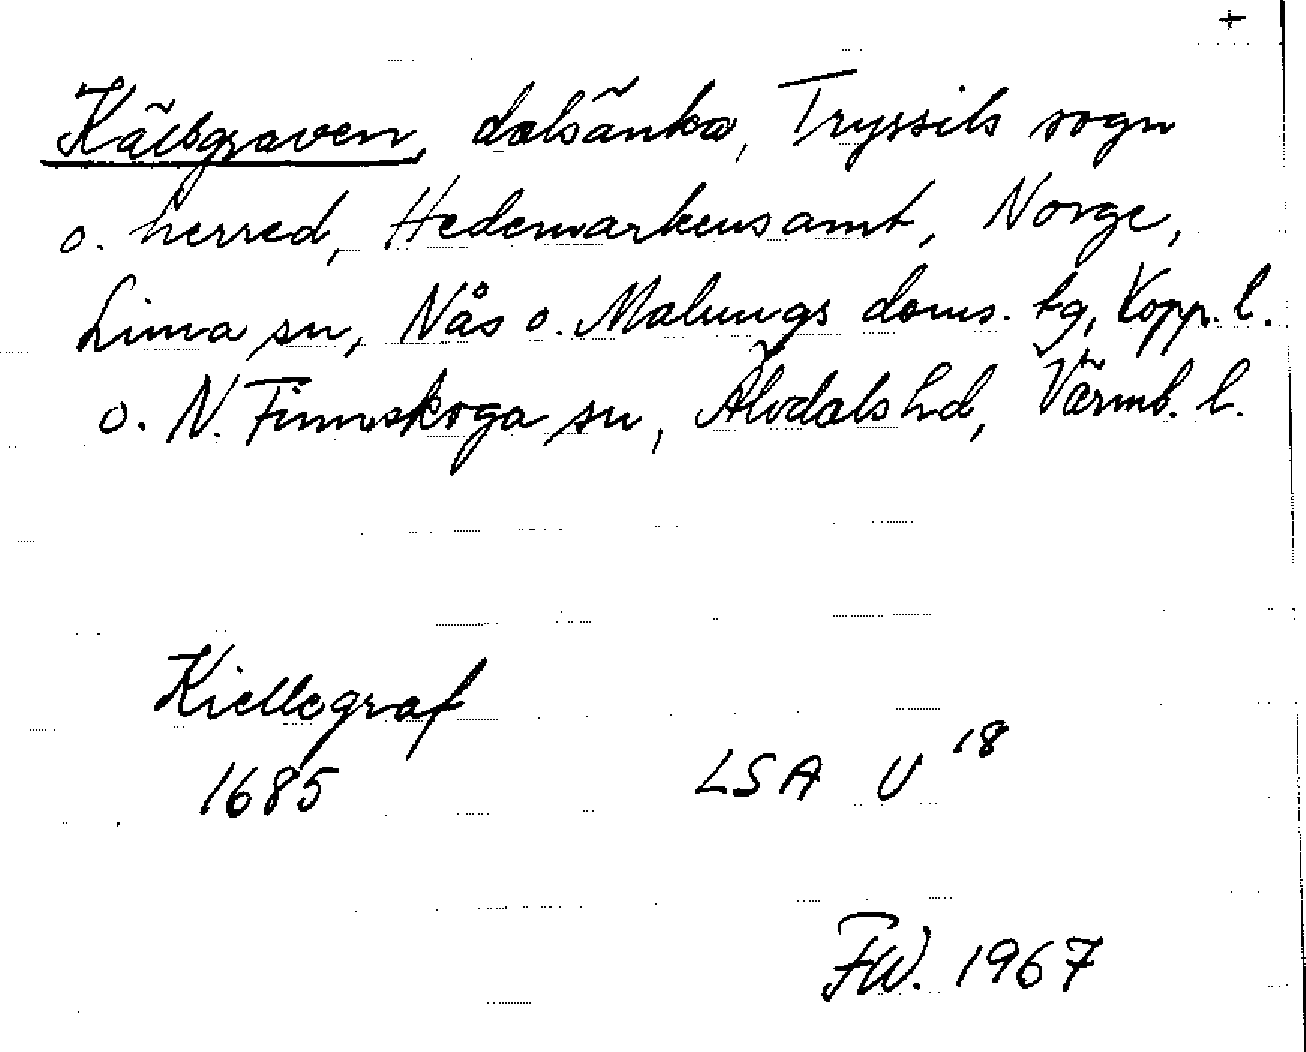 +
Källsgraven, dalsänka, Tryssils sogn
o. herred, Hedemarkens amt, Norge,
Lima sn, Nås o. Malungs doms. tg, Kopp. l.
o. N. Finnskoga sn, Älvdals hd, Värml. l.
Kiellegraf
1685
LSA U 18
FW. 1967